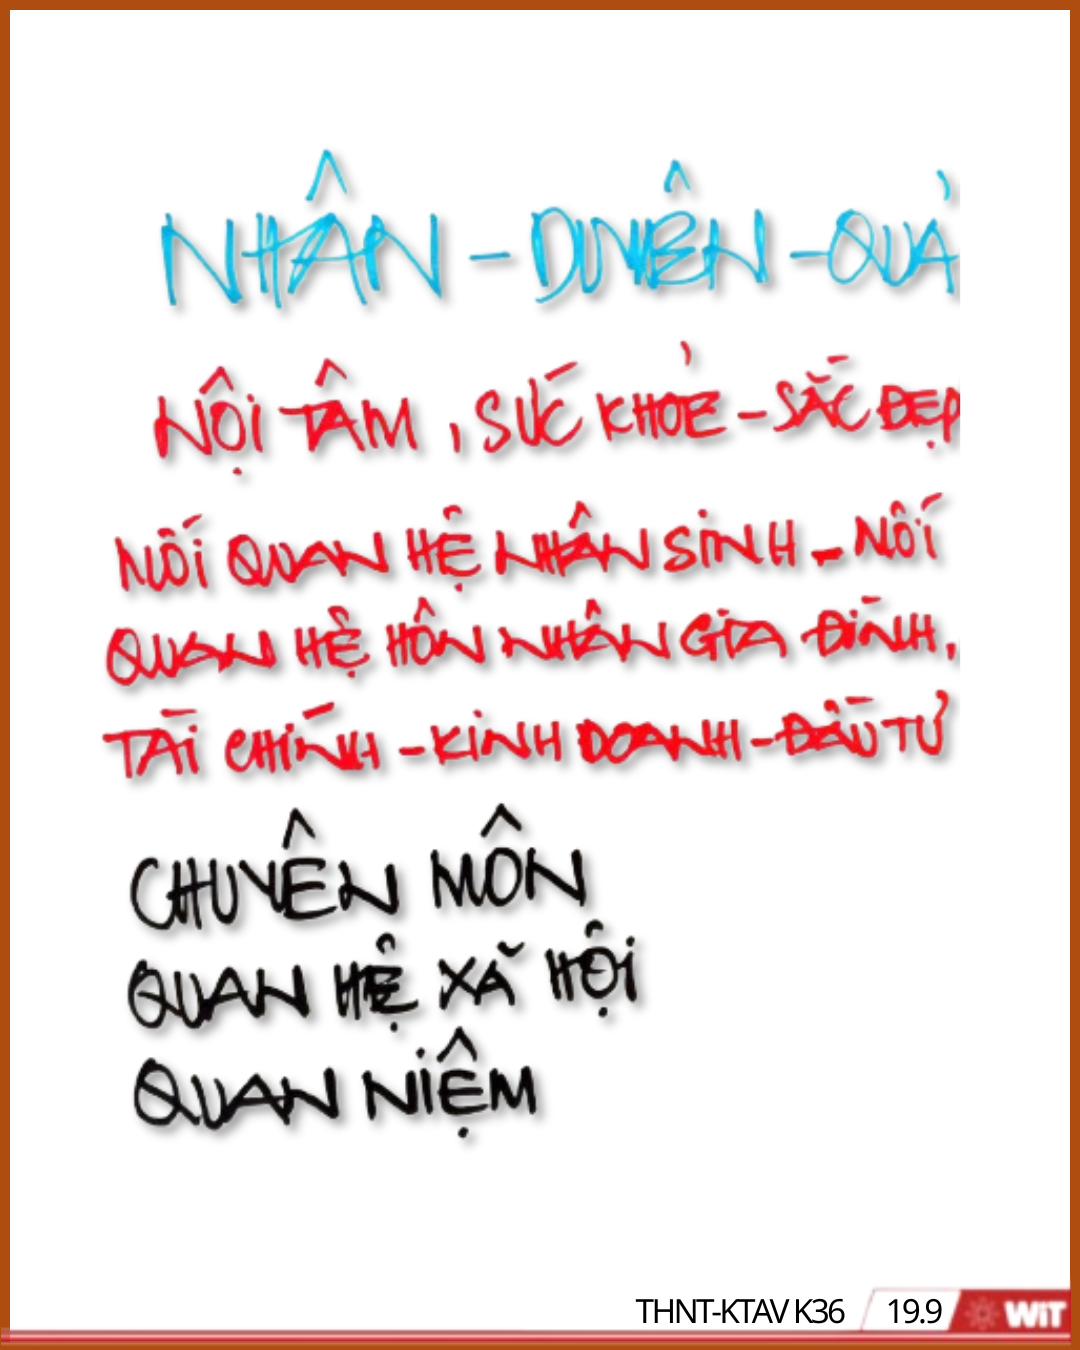 NHÂN - DUYÊN - QUẢ
NỘI TÂM, SỨC KHOẺ - SẮC ĐẸP
MỐI QUAN HỆ NHÂN SINH - MỐI
QUAN HỆ HÔN NHÂN GIA ĐÌNH,
TÀI CHÍNH - KINH DOANH - ĐẦU TƯ
CHUYÊN MÔN
QUAN HỆ XÃ HỘI
QUAN NIỆM
THNT-KTAV K36 19.9 WiT